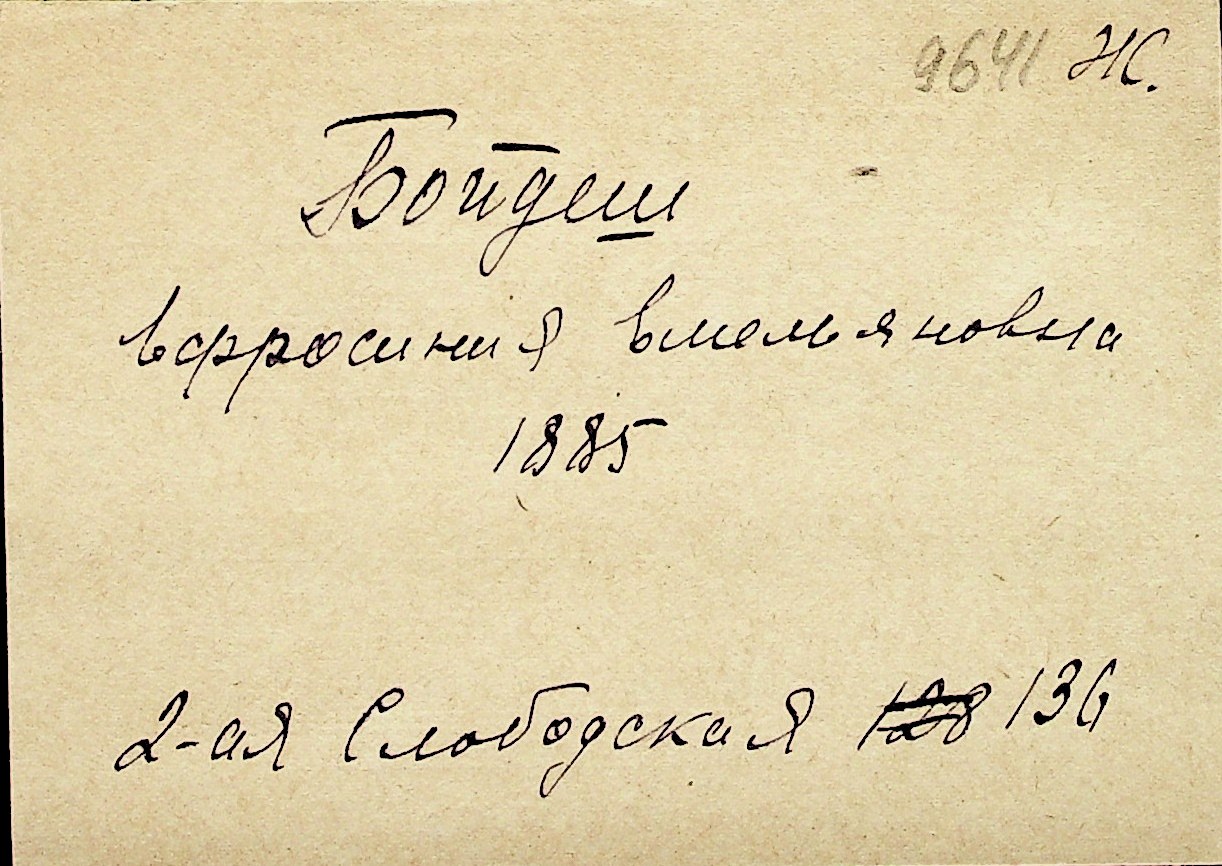 9641 Ж.
Бойдеш
Ефросиния Емельяновна
1885
2-ая Слободская 128 136